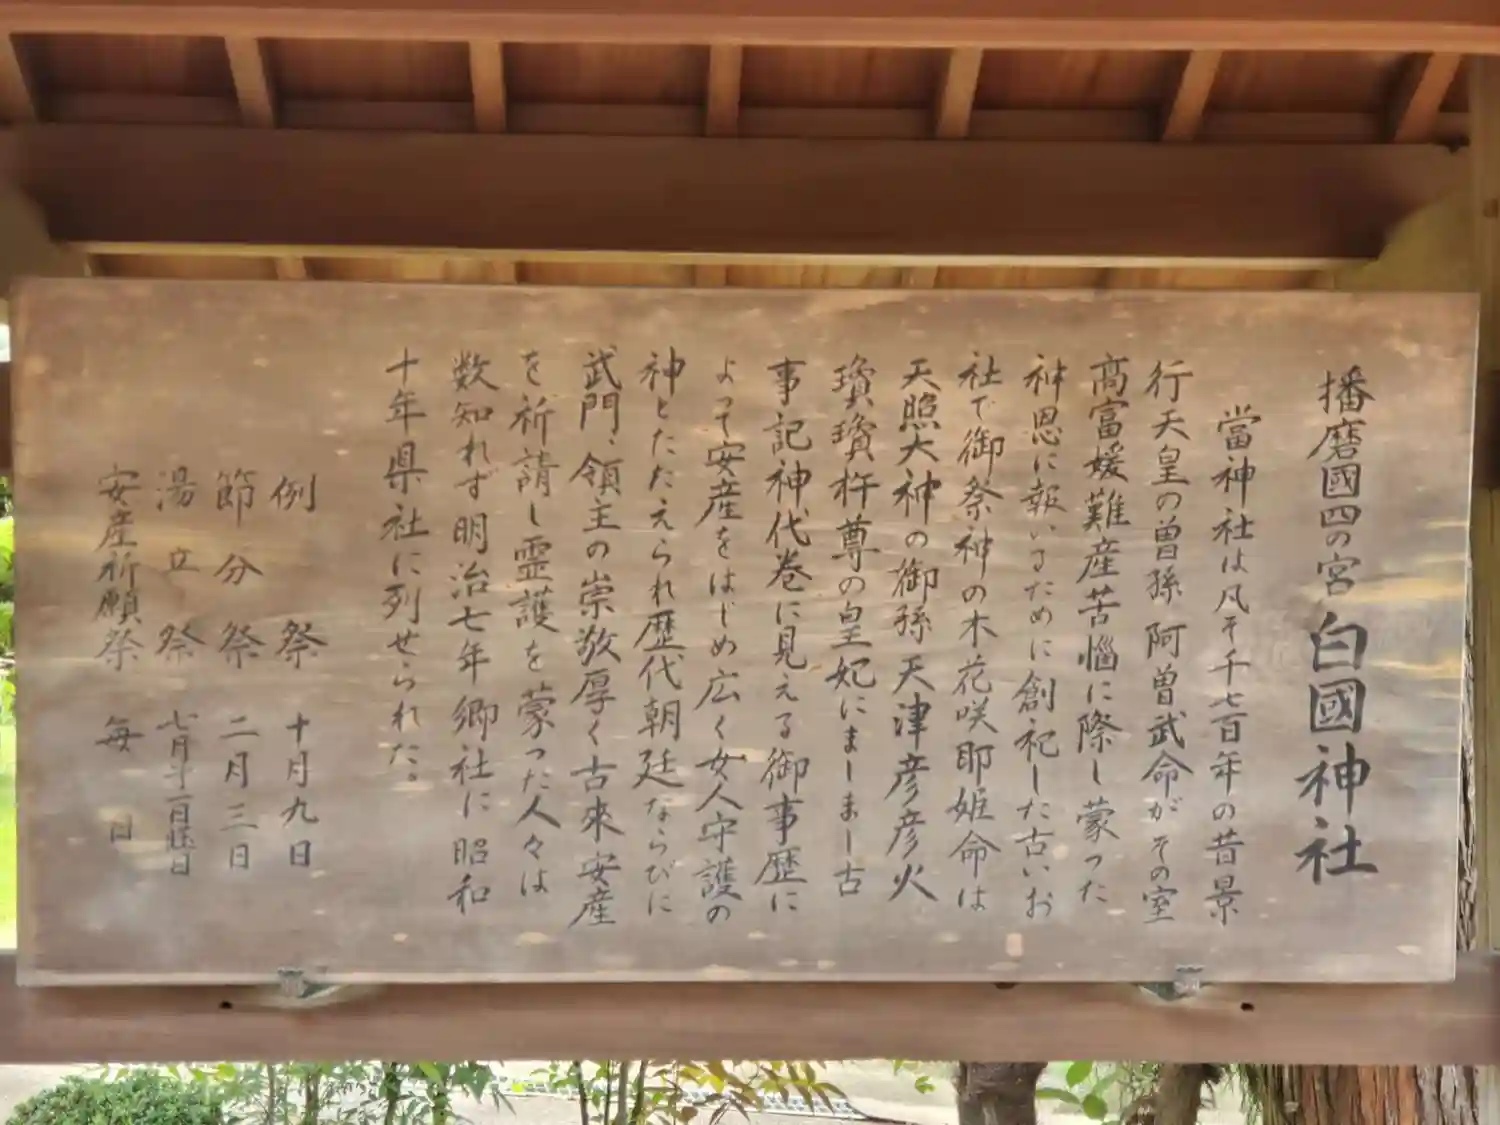 播磨國四の宮 白國神社
當神社は凡そ千七百年の昔景
行天皇の曽孫阿曽武命がその室
高富媛難産苦悩に際し蒙った
神恩に報いるために創祀した古いお
社で御祭神の木花咲耶姫命は
天照大神の御孫天津彦彦火
瓊瓊杵尊の皇妃にましまし古
事記神代巻に見える御事歴に
よって安産をはじめ広く女人守護の
神とたたえられ歴代朝廷ならびに
武門、領主の崇敬厚く古來安産
を祈請し霊護を蒙った人々は
数知れず明治七年郷社に昭和
十年県社に列せられた。
例祭 十月九日
節分祭 二月三日
湯立祭 七月
安産祈願祭 毎日